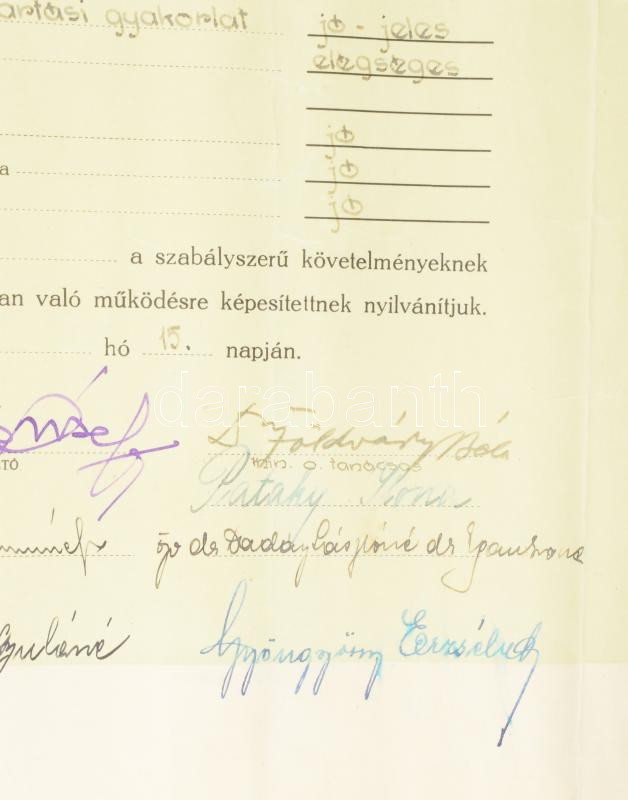 artási gyakorlat jó - jeles
elégséges
jó
a jó
jó
a szabályszerű követelményeknek
an való működésre képesítettnek nyilvánítjuk.
hó 15. napján.
darabanth
Dr Földváry Béla
ETŐ min. o. tanácsos
Pataky Ilona
özv dr Daday Lászlóné dr
Gyuláné Gyöngyösy Erzsébet